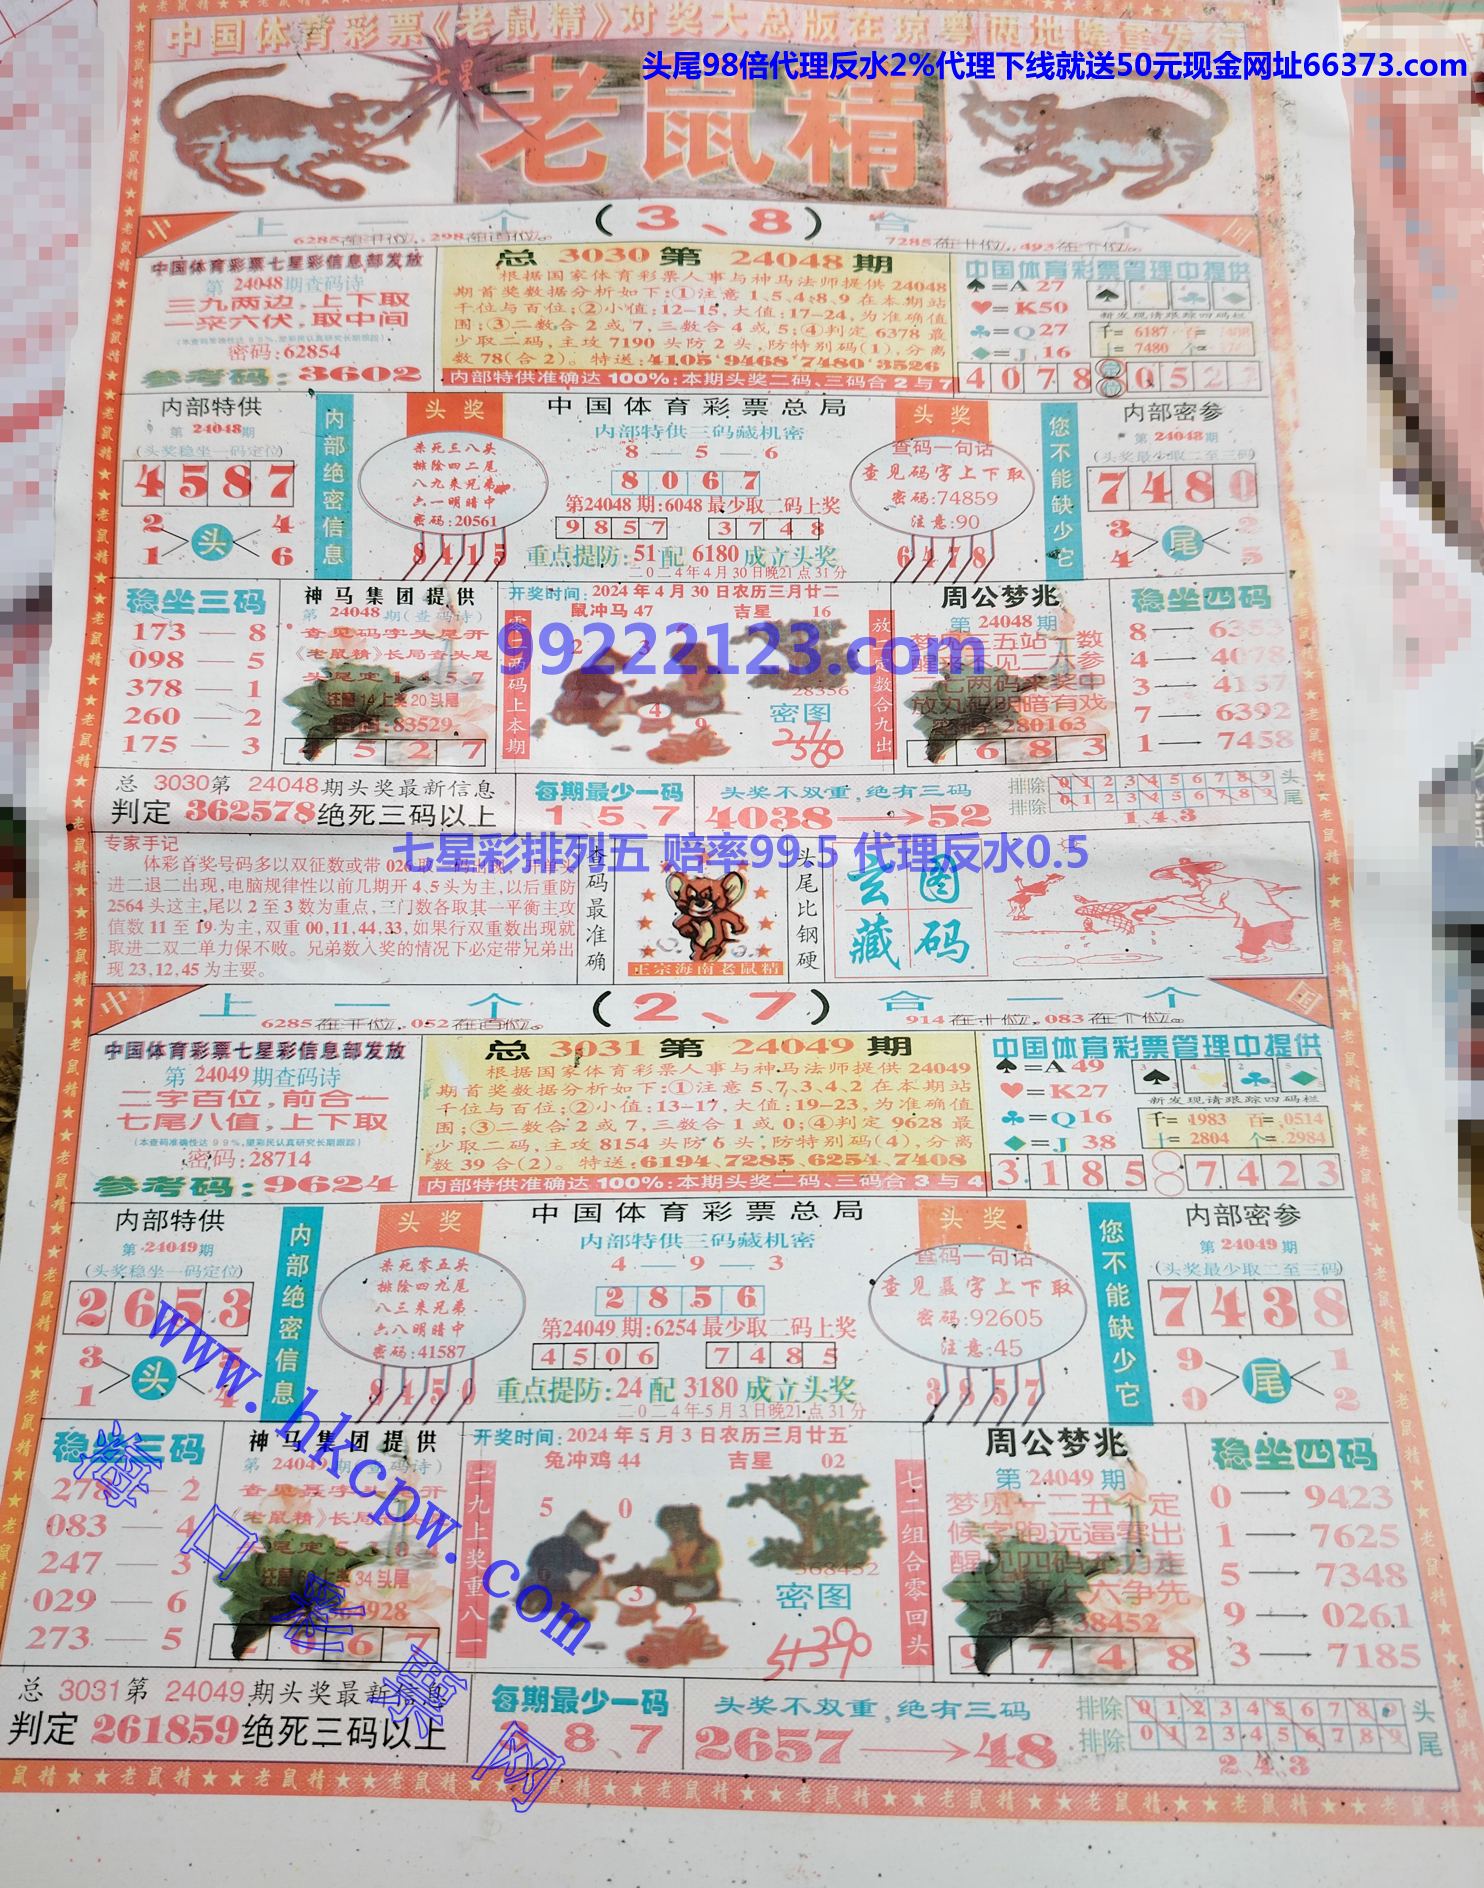 中国体育彩票《老鼠精》对奖大总版在琼粤两地隆重发行
头尾98倍代理反水2%代理下线就送50元现金网址66373.com
七星
老鼠精
中 上一个(3、8)合一个 国
6285在十位,298在百位。
7285在十位,493在个位。
中国体育彩票七星彩信息部发放
第24048期查码诗
三九两边,上下取
二来六伏,取中间
密码:62854
参考码:3602
总3030第24048期
根据国家体育彩票人事与神马法师提供24048
期首奖数据分析如下:①注意1、5、4、8、9在本期站
千位与百位;②小值:12-15,大值:17-24,为准确值
围;③二数合2或7,三数合4或5;④判定6378最
少取二码,主攻7190头防2头,防特别码(1),分离
数78(合2)。特送:4105、9468、7480、3526
内部特供准确达100%:本期头奖二码、三码合2与7
中国体育彩票管理中提供
♠=A 27
♥=K50
♣=Q27
♦=J.16
新发现请跟踪四码栏
千=6187
十=7480
4078 0527
内部特供
第24048期
(头奖稳坐一码定位)
4587
2 4
头
1 6
内部绝密信息
头奖
杀死三八头
排除四二尾
八九来兄弟
六一明暗中
密码:20561
9415
中国体育彩票总局
内部特供三码藏机密
8—5—6
8067
第24048期:6048最少取二码上奖
9857 3748
重点提防:51配6180成立头奖
二0二4年4月30日晚21点31分
头奖
查码一句话
查见码字上下取
密码:74859
注意:90
6478
您不能缺少它
内部密参
第24048期
(头奖最少取二至三码)
7480
3 2
尾
4 5
稳坐三码
173—8
098—5
378—1
260—2
175—3
神马集团提供
第24048期(查码诗)
查见码字头尾开
《老鼠精》长局查头尾
头尾定1、4、5、7
注意14上奖20头尾
密码:83529
527
开奖时间:2024年4月30日农历三月廿二
鼠冲马47 吉星16
零二两码上本期
2 3
4
9
28356
密图
放一定数合九出
99222123.com
周公梦兆
第24048期
醒来不见二六参
二七两码来奖中
放九码明暗有戏
280163
683
稳坐四码
8→635
4→4078
3→4157
7→6392
1→7458
总3030第24048期头奖最新信息
判定362578绝死三码以上
每期最少一码
1、5、7
头奖不双重,绝有三码
4038→52
排除0123456789头
排除0123456789尾
1、4、3
七星彩排列五 赔率99.5 代理反水0.5
专家手记
体彩首奖号码多以双征数或带026取一码出现,开单头
进二退二出现,电脑规律性以前几期开4、5头为主,以后重防
2564头这主,尾以2至3数为重点,三门数各取其一平衡主攻
值数11至19为主,双重00,11,44,33,如果行双重数出现就
取进二双二单力保不败。兄弟数入奖的情况下必定带兄弟出
现23,12,45为主要。
查码最准确
正宗海南老鼠精
头尾比钢硬
玄图
藏码
中 上一个(2、7)合一个 国
6285在十位,052在百位。
914在十位,083在个位。
中国体育彩票七星彩信息部发放
第24049期查码诗
二字百位,前合一
七尾八值,上下取
(本查码准确性达99%,望彩民认真研究长期跟踪)
密码:28714
参考码:9624
总3031第24049期
根据国家体育彩票人事与神马法师提供24049
期首奖数据分析如下:①注意5、7、3、4、2在本期站
千位与百位;②小值:13-17,大值:19-23,为准确值
围;③二数合2或7,三数合1或0;④判定9628最
少取二码,主攻8154头防6头,防特别码(4),分离
数39合(2)。特送:6194、7285、6254、7408
内部特供准确达100%:本期头奖二码、三码合3与4
中国体育彩票管理中提供
♠=A49
♥=K27
♣=Q16
♦=J 38
新发现请跟踪四码栏
千=1983 百=0514
十=2804 个=2984
3185 7423
内部特供
第24049期
(头奖稳坐一码定位)
2653
3
头
1 4
内部绝密信息
头奖
杀死零五头
排除四九尾
八三来兄弟
六八明暗中
密码:41587
9459
中国体育彩票总局
内部特供三码藏机密
4—9—3
2856
第24049期:6254最少取二码上奖
4506 7485
重点提防:24配3180成立头奖
二0二4年5月3日晚21点31分
头奖
查码一句话
查见聂字上下取
密码:92605
注意:45
3857
您不能缺少它
内部密参
第24049期
(头奖最少取二至三码)
7438
9 1
尾
0 2
www.hkcpw.com
海口彩票网
稳坐三码
278—2
083—4
247—3
029—6
273—5
神马集团提供
第24049期(查码诗)
34头尾
4928
2067
开奖时间:2024年5月3日农历三月廿五
兔冲鸡44 吉星02
二九上奖重八一
5 0
3
2
368452
密图
七二组合零回头
周公梦兆
第24049期
梦见一二五个定
候字跑远逼零出
38452
9748
稳坐四码
0→9423
1→7625
5→7348
9→0261
3→7185
总3031第24049期头奖最新信息
判定261859绝死三码以上
每期最少一码
3、8、7
头奖不双重,绝有三码
2657→48
排除0123456789头
排除0123456789尾
2、4、3